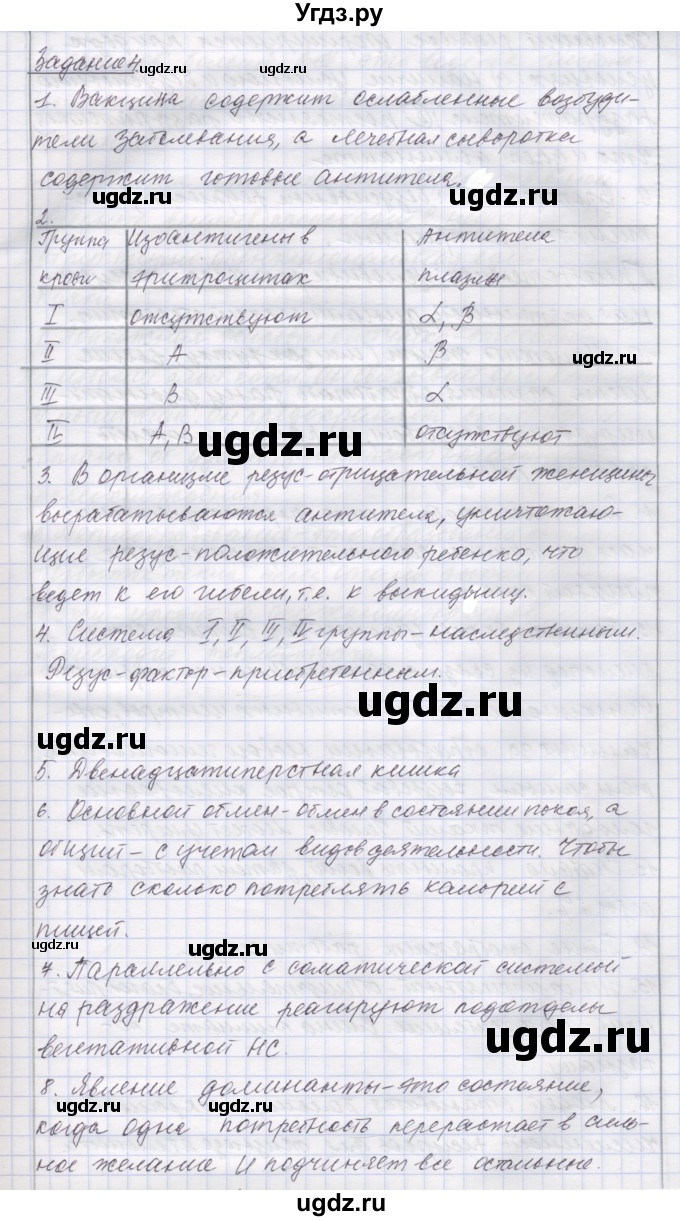 Угдз.ру
Задание 4
ugdz.ru ugdz.ru
1. Вакцина содержит ослабленные возбуди-
тели заболевания, а лечебная сыворотка
содержит готовые антитела.
ugdz.ru ugdz.ru
2.
Группа Изоантигены в Антитела
крови эритроцитах плазме
I отсутствуют α, β
II A β
ugdz.ru
III B α
IV A, B отсутствуют
ugdz.ru
3. В организме резус-отрицательной женщины
вырабатываются антитела, уничтожаю-
щие резус-положительного ребенка, что
ведет к его гибели, т.е. к выкидышу.
4. Система I, II, III, IV группы - наследственным.
Резус-фактор - приобретенным.
ugdz.ru
ugdz.ru
5. Двенадцатиперстная кишка
6. Основной обмен - обмен в состоянии покоя, а
общий - с учетом видов деятельности. Чтобы
знать сколько потреблять калорий с
пищей.
ugdz.ru ugdz.ru
7. Параллельно с соматической системой
на раздражение реагируют подотделы
вегетативной НС.
ugdz.ru
8. Явление доминанты - это состояние,
ugdz.ru ugdz.ru
когда одна потребность перерастает в силь-
ное желание и подчиняет все остальные.
ugdz.ru